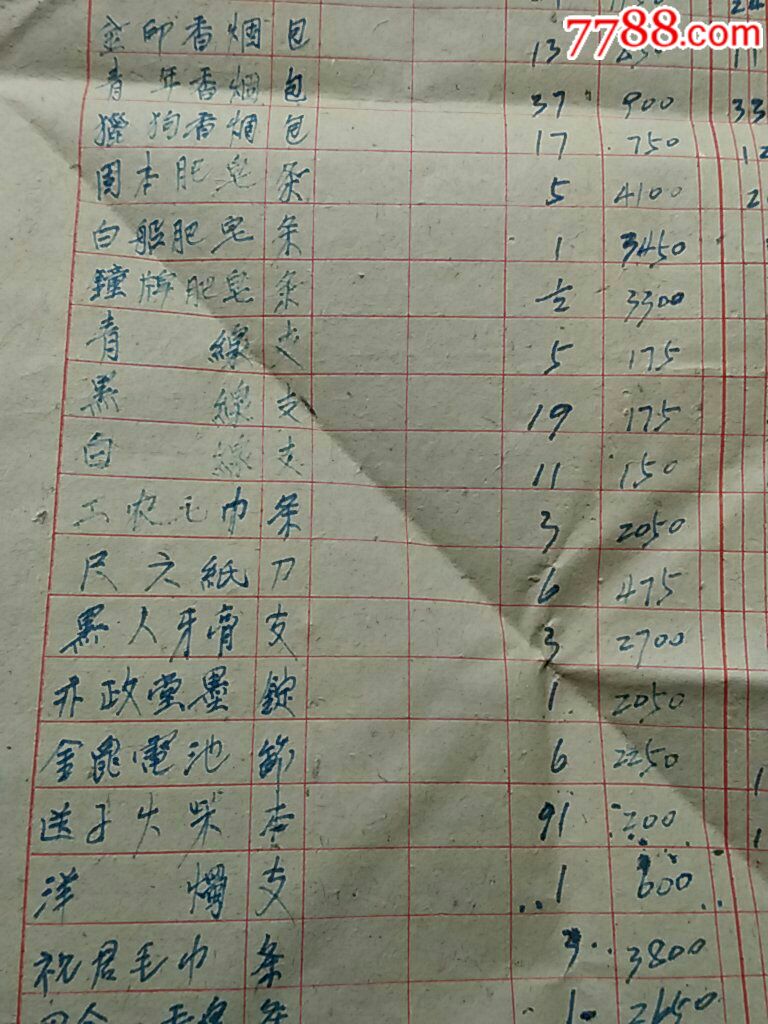 7788.com
金印香烟 包 13
青年香烟 包 37 900 33
猎狗香烟 包 17 750 12
固本肥皂 条 5 4100
白船肥皂 条 1 3450
鐘牌肥皂 条 ½ 3300
青線 支 5 175
黑線 支 19 175
白線 支 11 150
工农毛巾 条 3 2050
尺六紙 刀 6 475
黑人牙膏 支 3 2700
政堂墨 錠 1 2050
金電池 節 6 2250
送子火柴 91 200
洋燭 支 1 600
祝君毛巾 条 3 3800
1 2650